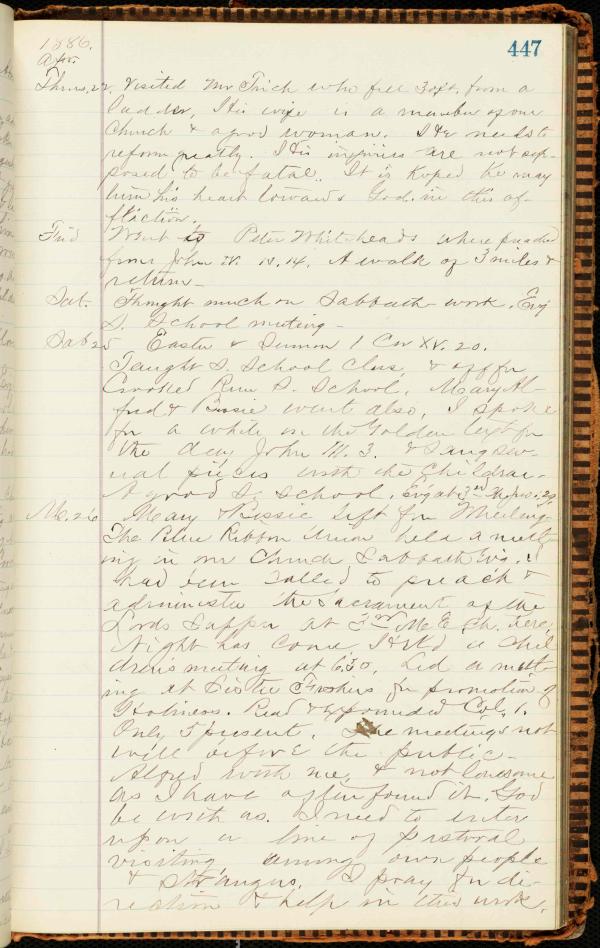 1886.
447
Apr.
Thurs. 22. Visited Mr Trich who fell 30ft. from a
ladder, His wife is a member of our
Church & a good woman. He needs to
reform greatly. His injuries are not sup-
posed to be fatal. It is hoped he may
turn his heart towards God. in this af-
fliction.
Frid Went to Peter Whiteheads where preached
from John 14. A walk of 3 miles &
return.
Sat. Thought much on Sabbath-work. Evg
S. School meeting.
Sab 25 Easter & Sermon 1 Cor XV. 20.
Taught S. School Class, & off for
Crooked Run S. School. Mary Al-
fred & Bessie went also, I spoke
for a while on the Golden text for
the day John III. 3. & sang sev-
eral pieces with the Children.
A good S. School. Evg at
M. 26 Mary & Bessie left for Wheeling.
The Blue Ribbon Union held a meet-
ing in our Church Sabbath Evg. I
had been called to preach &
administer the Sacrament of the
Lords Supper at 3rd M E Ch. here,
Night has come. Held a Chil
drens meeting at 6.30. Led a meet-
ing at Sister for promotion of
Holiness. Read & Expounded Col. 1.
Only 5 present. The meetings not
well before the public.
Alfred with me, & not lonesome
as I have often found it. God
be with us. I need to enter
upon a line of pastoral
visiting, among own people
& strangers. I pray for di-
rection & help in this work.